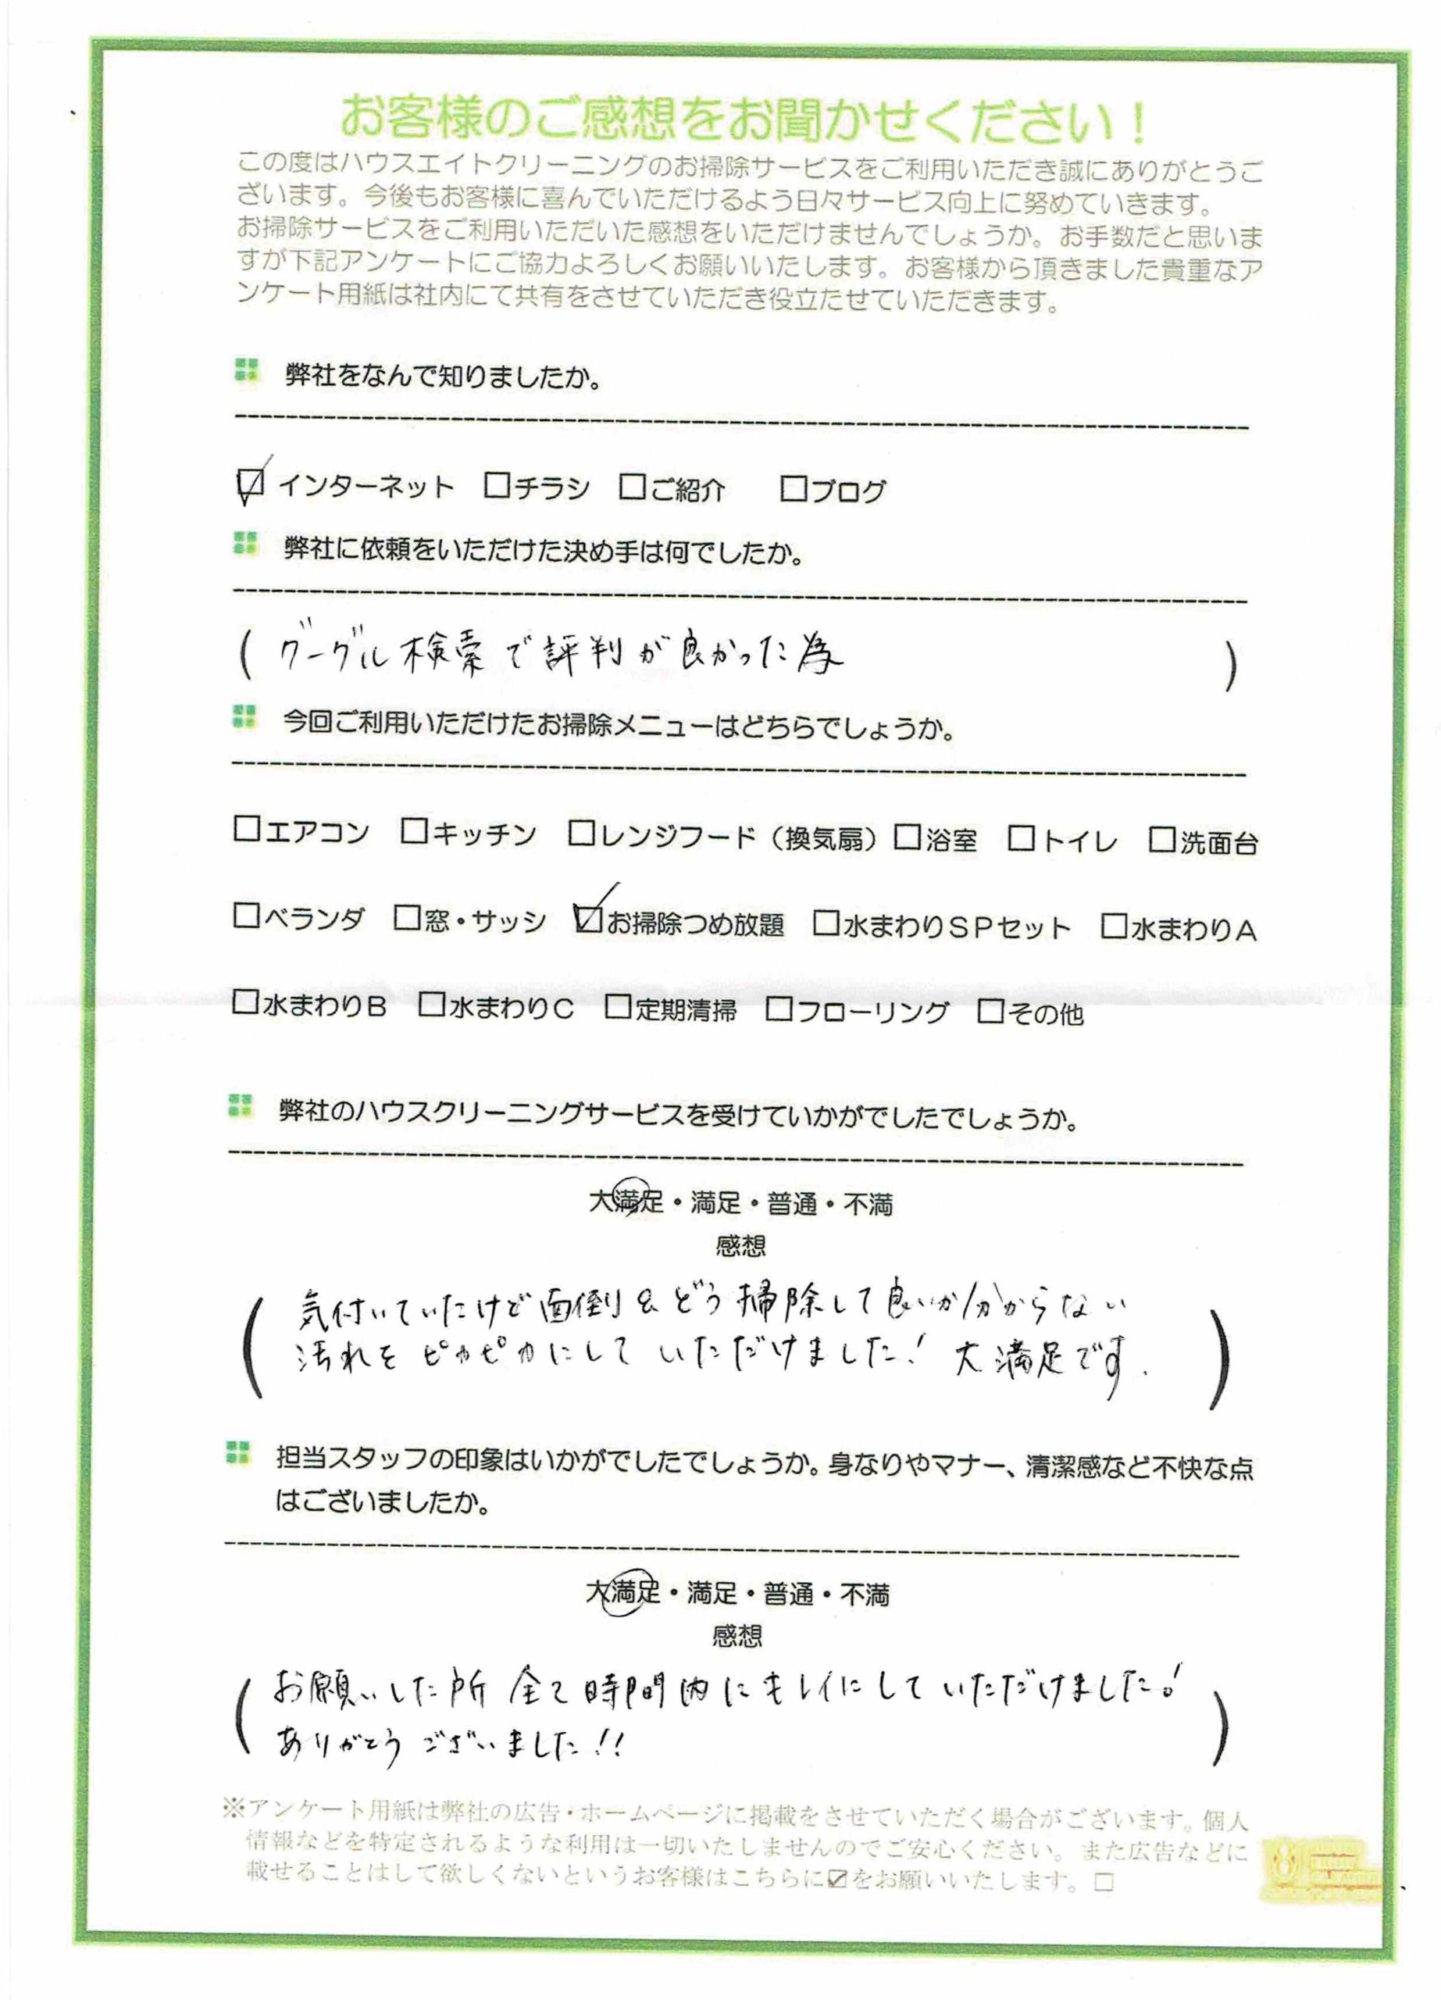 お客様のご感想をお聞かせください！
この度はハウスエイトクリーニングのお掃除サービスをご利用いただき誠にありがとうご
ざいます。今後もお客様に喜んでいただけるよう日々サービス向上に努めていきます。
お掃除サービスをご利用いただいた感想をいただけませんでしょうか。お手数だと思いま
すが下記アンケートにご協力よろしくお願いいたします。お客様から頂きました貴重なア
ンケート用紙は社内にて共有をさせていただき役立たせていただきます。
弊社をなんで知りましたか。
☑インターネット □チラシ □ご紹介 □ブログ
弊社に依頼をいただけた決め手は何でしたか。
（グーグル検索で評判が良かった為）
今回ご利用いただけたお掃除メニューはどちらでしょうか。
□エアコン □キッチン □レンジフード（換気扇）□浴室 □トイレ □洗面台
□ベランダ □窓・サッシ ☑お掃除つめ放題 □水まわりＳＰセット □水まわりＡ
□水まわりＢ □水まわりＣ □定期清掃 □フローリング □その他
弊社のハウスクリーニングサービスを受けていかがでしたでしょうか。
大満足・満足・普通・不満
感想
（気付いていたけど面倒＆どう掃除して良いか分からない
汚れをピカピカにしていただけました！大満足です.）
担当スタッフの印象はいかがでしたでしょうか。身なりやマナー、清潔感など不快な点
はございましたか。
大満足・満足・普通・不満
感想
（お願いした所全て時間内にキレイにしていただけました！
ありがとうございました!!）
※アンケート用紙は弊社の広告・ホームページに掲載をさせていただく場合がございます。個人
情報などを特定されるような利用は一切いたしませんのでご安心ください。また広告などに
載せることはして欲しくないというお客様はこちらに☑をお願いいたします。□